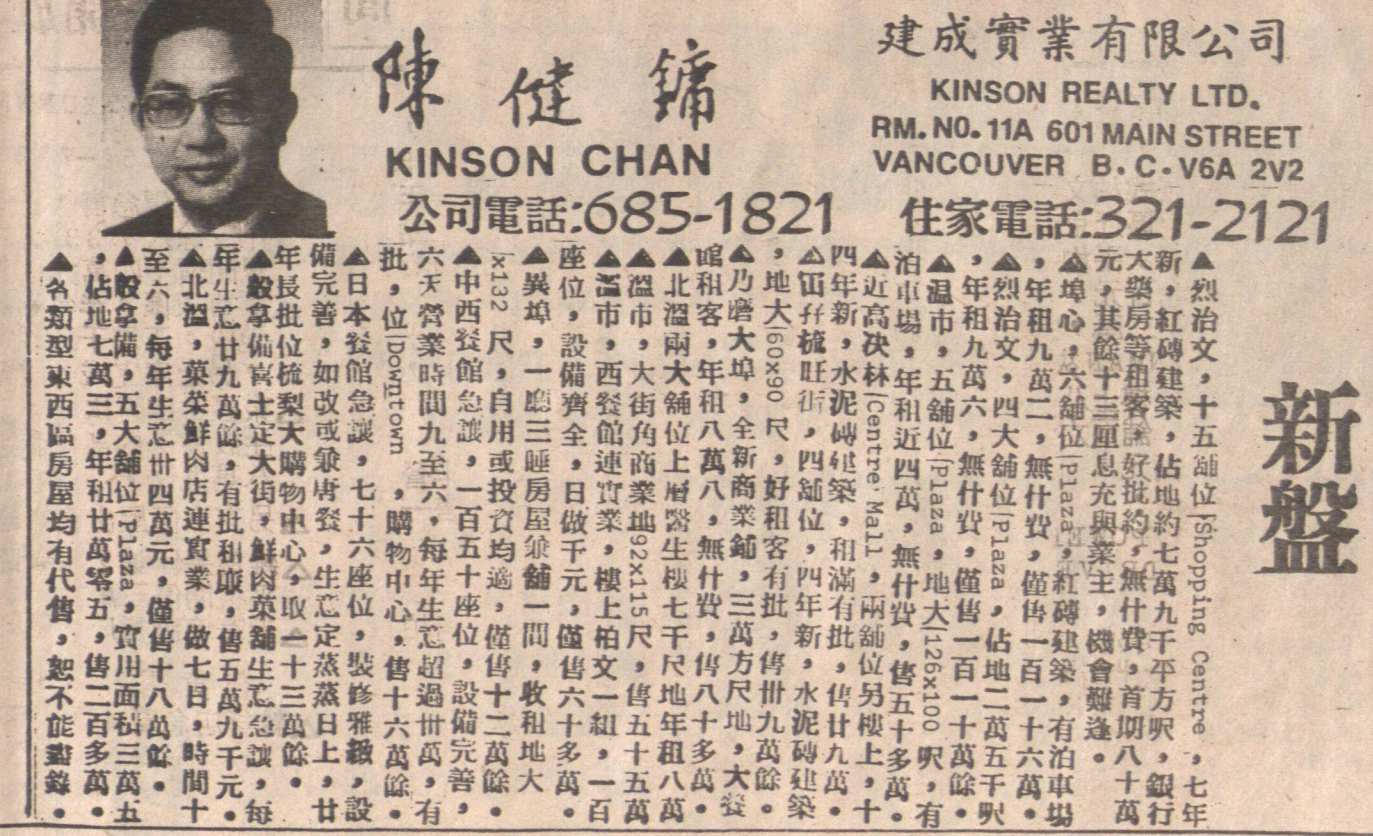 陳健鏞
KINSON CHAN
公司電話:685-1821
建成實業有限公司
KINSON REALTY LTD.
RM. NO. 11A 601 MAIN STREET
VANCOUVER B.C. V6A 2V2
住家電話:321-2121
新盤
▲烈治文，十五舖位Shopping Centre，七年
新，紅磚建築，佔地約七萬九千平方呎，銀行
大藥房等租客，好批約，無什費，首期八十萬
元，其餘十三厘息充與業主，機會難逢。
▲埠心，六舖位Plaza，紅磚建築，有泊車場
，年租九萬二，無什費，僅售一百一十六萬。
▲烈治文，四大舖位Plaza，佔地二萬五千呎
，年租九萬六，無什費，僅售一百一十萬餘。
▲溫市，五舖位Plaza，地大126x100呎，有
泊車場，年租近四萬，無什費，售五十多萬。
▲近高決林Centre Mall，兩舖位另樓上，十
四年新，水泥磚建築，租滿有批，售廿九萬。
▲雷孖梳旺街，四舖位，四年新，水泥磚建築
，地大60x90尺，好租客有批，售卅九萬餘。
▲乃磨大埠，全新商業鋪，三萬方尺地，大餐
館租客，年租八萬八，無什費，售八十多萬。
▲北溫兩大舖位上層醫生樓七千尺地年租八萬
▲溫市，大街角商業地92x115尺，售五十五萬
▲溫市，西餐館連實業，樓上柏文一組，一百
座位，設備齊全，日做千元，僅售六十多萬。
▲異埠，一廳三睡房屋兼舖一間，收租地大
x132尺，自用或投資均適，僅售十二萬餘。
▲中西餐館急讓，一百五十座位，設備完善，
六天營業時間九至六，每年生意超過卅萬，有
批，位Downtown，購物中心，售十六萬餘。
▲日本餐館急讓，七十六座位，裝修雅緻，設
備完善，如改或兼唐餐，生意定蒸蒸日上，廿
年長批位梳梨大購物中心，取一十三萬餘。
▲設享備喜士定大街，鮮肉菜舖生意急讓，每
年生意廿九萬餘，有批租廉，售五萬九千元。
▲北溫，菓菜鮮肉店連實業，做七日，時間十
至六，每年生意卅四萬元，僅售十八萬餘。
▲設享備，五大舖位Plaza，實用面積三萬五
，佔地七萬三，年租廿萬零五，售二百多萬。
▲各類型東西區房屋均有代售，恕不能盡錄。